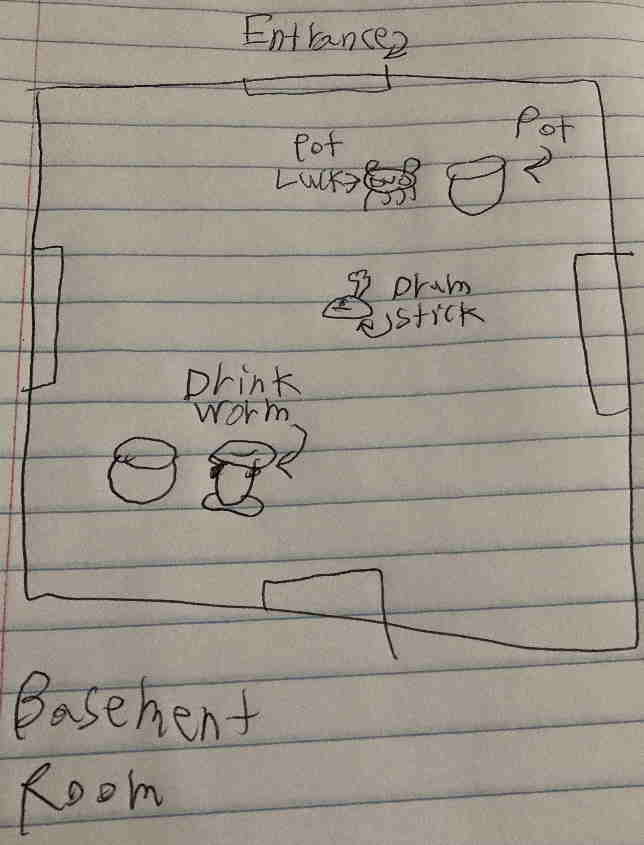 Entrance
Pot
Pot
Luck
Drum
stick
Drink
worm
Basement
Room